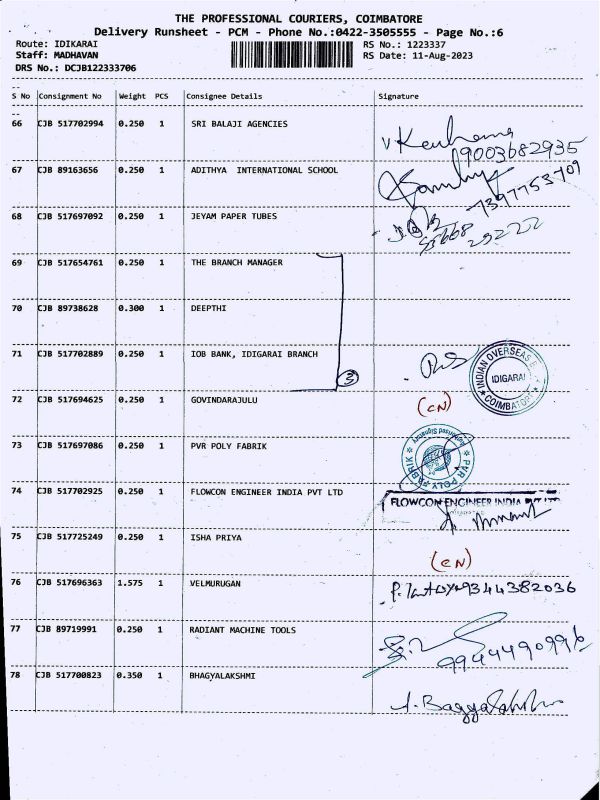 THE PROFESSIONAL COURIERS, COIMBATORE
Delivery Runsheet - PCM - Phone No.:0422-3505555 - Page No.:6
Route: IDIKARAI RS No.: 1223337
Staff: MADHAVAN RS Date: 11-Aug-2023
DRS No.: DCJB122333706
S No Consignment No Weight PCS Consignee Details Signature
66 CJB 517702994 0.250 1 SRI BALAJI AGENCIES
9003682935
67 CJB 89163656 0.250 1 ADITHYA INTERNATIONAL SCHOOL
7397753709
68 CJB 517697092 0.250 1 JEYAM PAPER TUBES
69 CJB 517654761 0.250 1 THE BRANCH MANAGER
70 CJB 89738628 0.300 1 DEEPTHI
71 CJB 517702889 0.250 1 IOB BANK, IDIGARAI BRANCH
3
INDIAN OVERSEAS
IDIGARAI
COIMBATORE
72 CJB 517694625 0.250 1 GOVINDARAJULU (CN)
73 CJB 517697086 0.250 1 PVR POLY FABRIK
PVR POLY FABRIK
Authorised Signatory
74 CJB 517702925 0.250 1 FLOWCON ENGINEER INDIA PVT LTD
FLOWCON ENGINEER INDIA PVT LTD
75 CJB 517725249 0.250 1 ISHA PRIYA (CN)
76 CJB 517696363 1.575 1 VELMURUGAN 9344382036
77 CJB 89719991 0.250 1 RADIANT MACHINE TOOLS
9944490996
78 CJB 517700823 0.350 1 BHAGYALAKSHMI